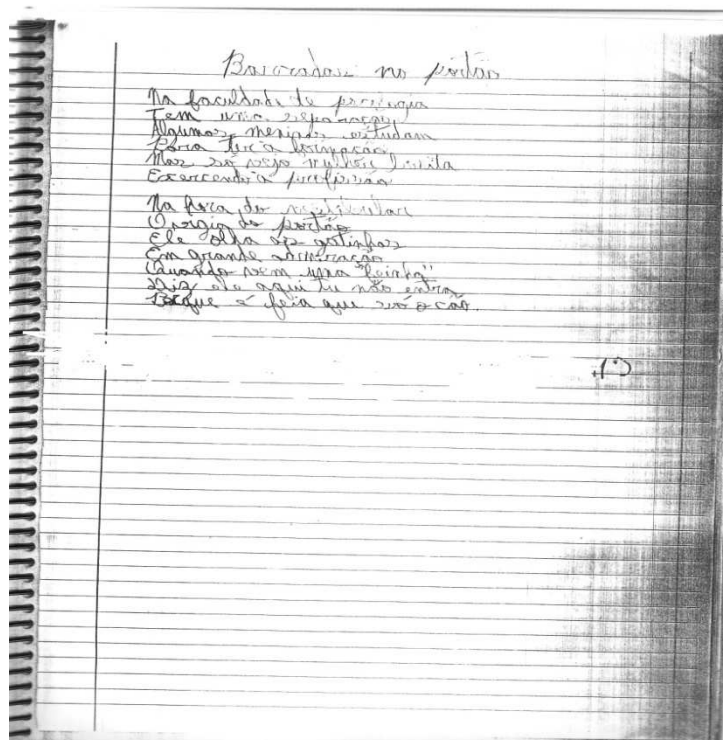 Barradas no portão
Na faculdade de psicologia
Tem uma separação
Algumas meninas estudam
Para ter a formação
Mas só vejo mulher bonita
Exercendo a profissão
Na hora do vestibular
O vigia do portão
Ele olha as gatinhas
Em grande admiração
Quando vem uma "feinha"
Diz ele aqui tu não entra
Porque é feia que só o cão.